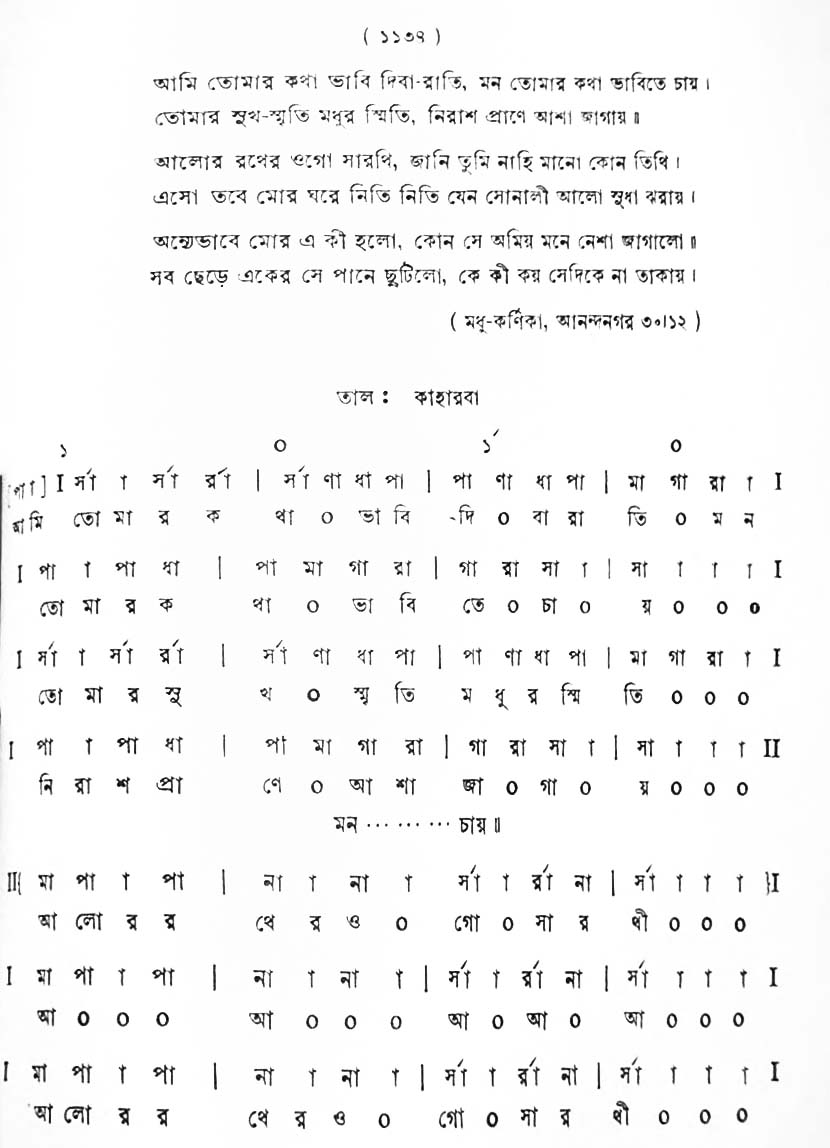 ( ১১৩৪ )
আমি তোমার কথা ভাবি দিবা-রাতি, মন তোমার কথা ভাবিতে চায় ।
তোমার সুখ-স্মৃতি মধুর স্মিতি, নিরাশ প্রাণে আশা জাগায় ॥
আলোর রথের ওগো সারথি, জানি তুমি নাহি মানো কোন তিথি ।
এসো তবে মোর ঘরে নিতি নিতি যেন সোনালী আলো সুধা ঝরায় ।
অন্যেভাবে মোর এ কী হলো, কোন সে অমিয় মনে নেশা জাগালো ॥
সব ছেড়ে একের সে পানে ছুটিলো, কে কী কয় সেদিকে না তাকায় ।
( মধু-কর্ণিকা, আনন্দনগর ৩০।১২ )
তাল : কাহারবা
১ ০ ১´ ০
[পা] I র্সা া র্সা র্রা | র্সা ণা ধা পা | পা ণা ধা পা | মা গা রা া I
আমি তো মা র ক থা ০ ভা বি -দি ০ বা রা তি ০ ম ন
I পা া পা ধা | পা মা গা রা | গা রা সা া | সা া া া I
তো মা র ক থা ০ ভা বি তে ০ চা ০ য় ০ ০ ০
I র্সা া র্সা র্রা | র্সা ণা ধা পা | পা ণা ধা পা | মা গা রা া I
তো মা র সু খ ০ স্মৃ তি ম ধু র স্মি তি ০ ০ ০
I পা া পা ধা | পা মা গা রা | গা রা সা া | সা া া া II
নি রা শ প্রা ণে ০ আ শা জা ০ গা ০ য় ০ ০ ০
মন ⋯ ⋯ ⋯ চায় ॥
II{ মা পা া পা | না া না া র্সা া র্রা না | র্সা া া া }I
আ লো র র থে র ও ০ গো ০ সা র থী ০ ০ ০
I মা পা া পা | না া না া | র্সা া র্রা না | র্সা া া া I
আ ০ ০ ০ আ ০ ০ ০ আ ০ আ ০ আ ০ ০ ০
I মা পা া পা | না া না া | র্সা া র্রা না | র্সা া া া I
আ লো র র থে র ও ০ গো ০ সা র থী ০ ০ ০